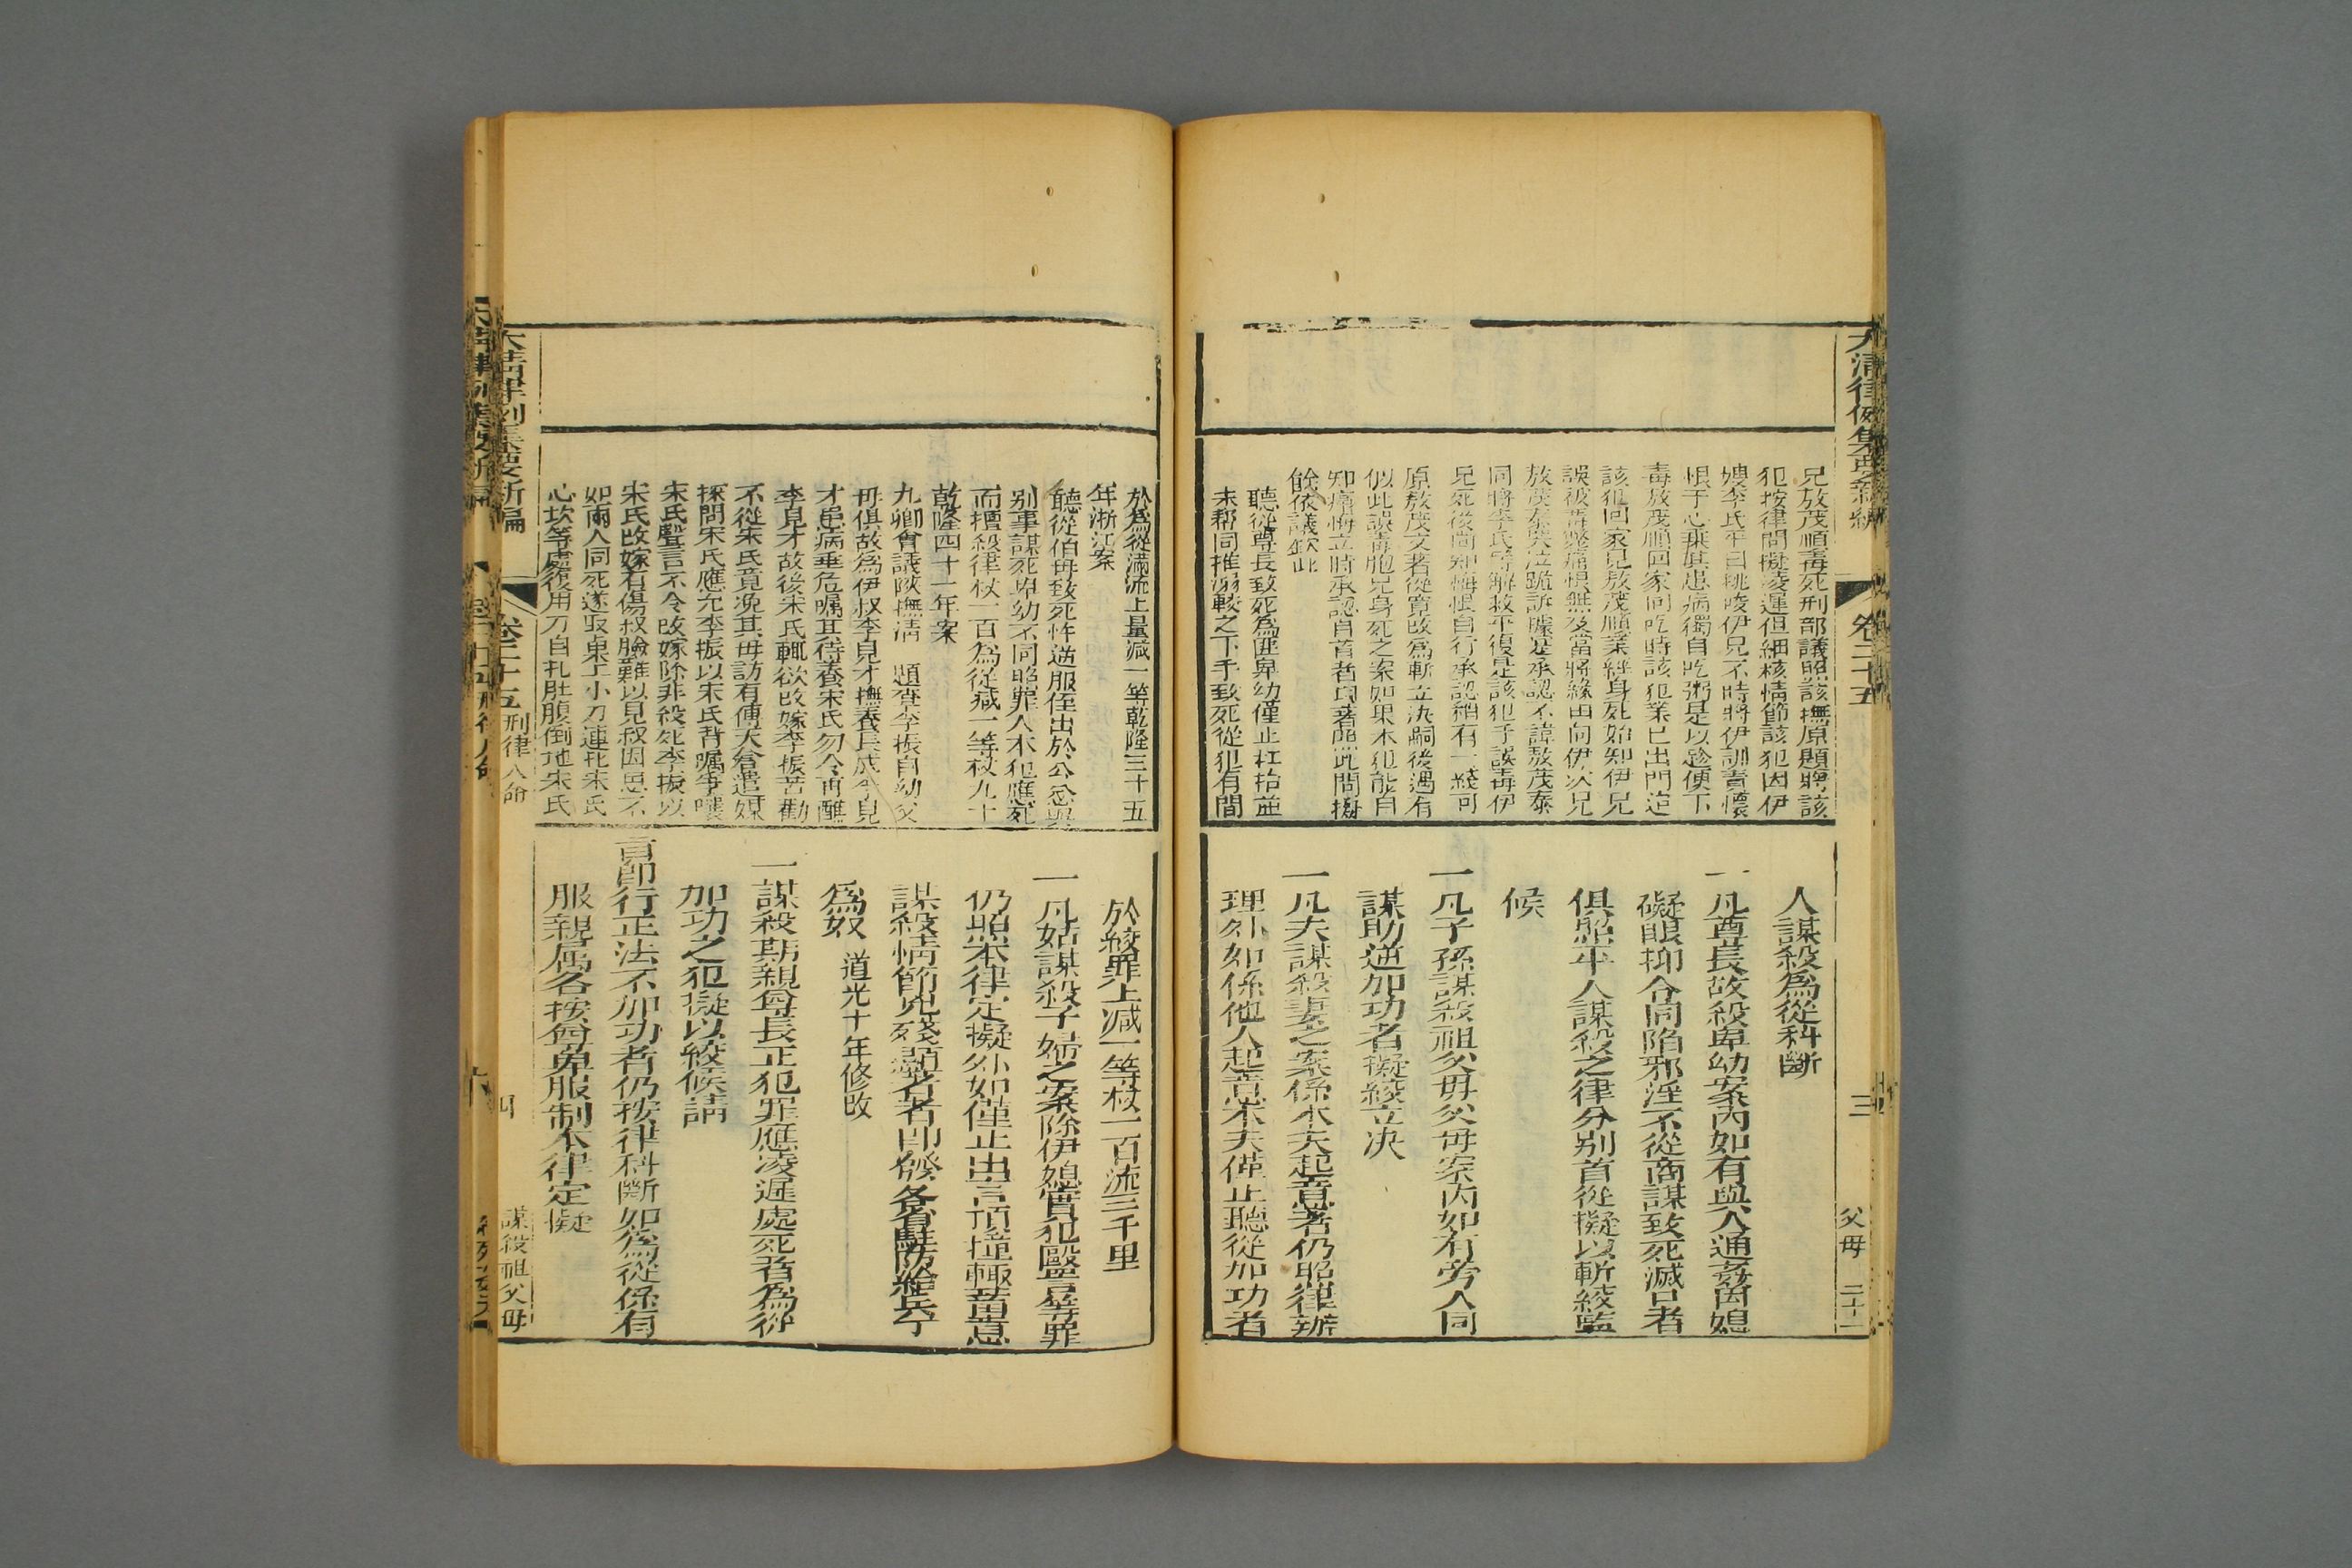 大清律例集要新編
卷二十五
三
父母
二十二
兄敖茂順毒死刑部議照該撫原題聘該
犯按律問擬凌遲但細核情節該犯因伊
嫂李氏平日挑唆伊兄不時將伊訓責懷
恨于心乘其患病獨自吃粥是以趁便下
毒敖茂順回家同吃時該犯業已出門迨
該犯回家見敖茂順業經身死始知伊兄
誤被毒斃痛恨無及當將緣由向伊次兄
敖茂泰哭泣跪訴據是承認不諱敖茂泰
同將李氏等解救平復是該犯于誤毒伊
兄死後尚知悔恨自行承認稍有一綫可
原敖茂文著從寬改為斬立決嗣後遇有
似此誤毒胞兄身死之案如果本犯能自
知痛悔立時承認自首者俱著照此問擬
餘依議欽此
聽從尊長致死為匪卑幼僅止杠抬並
未幇同推溺較之下手致死從犯有間
人謀殺為從科斷
一凡尊長故殺卑幼案內如有與人通姦因媳
礙眼抑令同陷邪淫不從商謀致死滅口者
俱照平人謀殺之律分別首從擬以斬絞監
候
一凡子孫謀殺祖父母父母案內如有旁人同
謀助逆加功者擬絞立決
一凡夫謀殺妻之案係本夫起意者仍照律辦
理外如係他人起意本夫僅止聽從加功者
於為從滿流上量減一等乾隆三十五
年浙江案
聽從伯母致死忤逆服侄出於公忿與
別事謀死卑幼不同照罪人本犯應死
而擅殺律杖一百為從減一等杖九十
乾隆四十一年案
九卿會議陝撫請 題查李振自幼父
母俱故為伊叔李見才撫養長成李見
才患病垂危囑其侍養宋氏勿令再醮
李見才故後宋氏輒欲改嫁李振苦勸
不從宋氏竟浼其母訪有傅天倉遣媒
探問宋氏應允李振以宋氏背囑爭嚷
宋氏聲言不令改嫁除非殺死李振以
宋氏改嫁有傷叔臉難以見叔因思不
如兩人同死遂取桌上小刀連扎宋氏
心坎等處復用刀自扎肚腹倒地宋氏
於絞罪上減一等杖一百流三千里
一凡姑謀殺子婦之案除伊媳實犯毆詈等罪
仍照本律定擬外如僅止出言頂撞輒蓄意
謀殺情節兇殘顯著者即發各省駐防給兵丁
為奴 道光十年修改
一謀殺期親尊長正犯罪應凌遲處死者為從
加功之犯擬以絞候請
旨即行正法不加功者仍按律科斷如為從係有
服親屬各按尊卑服制本律定擬
大清律例集要新編
卷二十五
刑律人命
四
謀殺祖父母